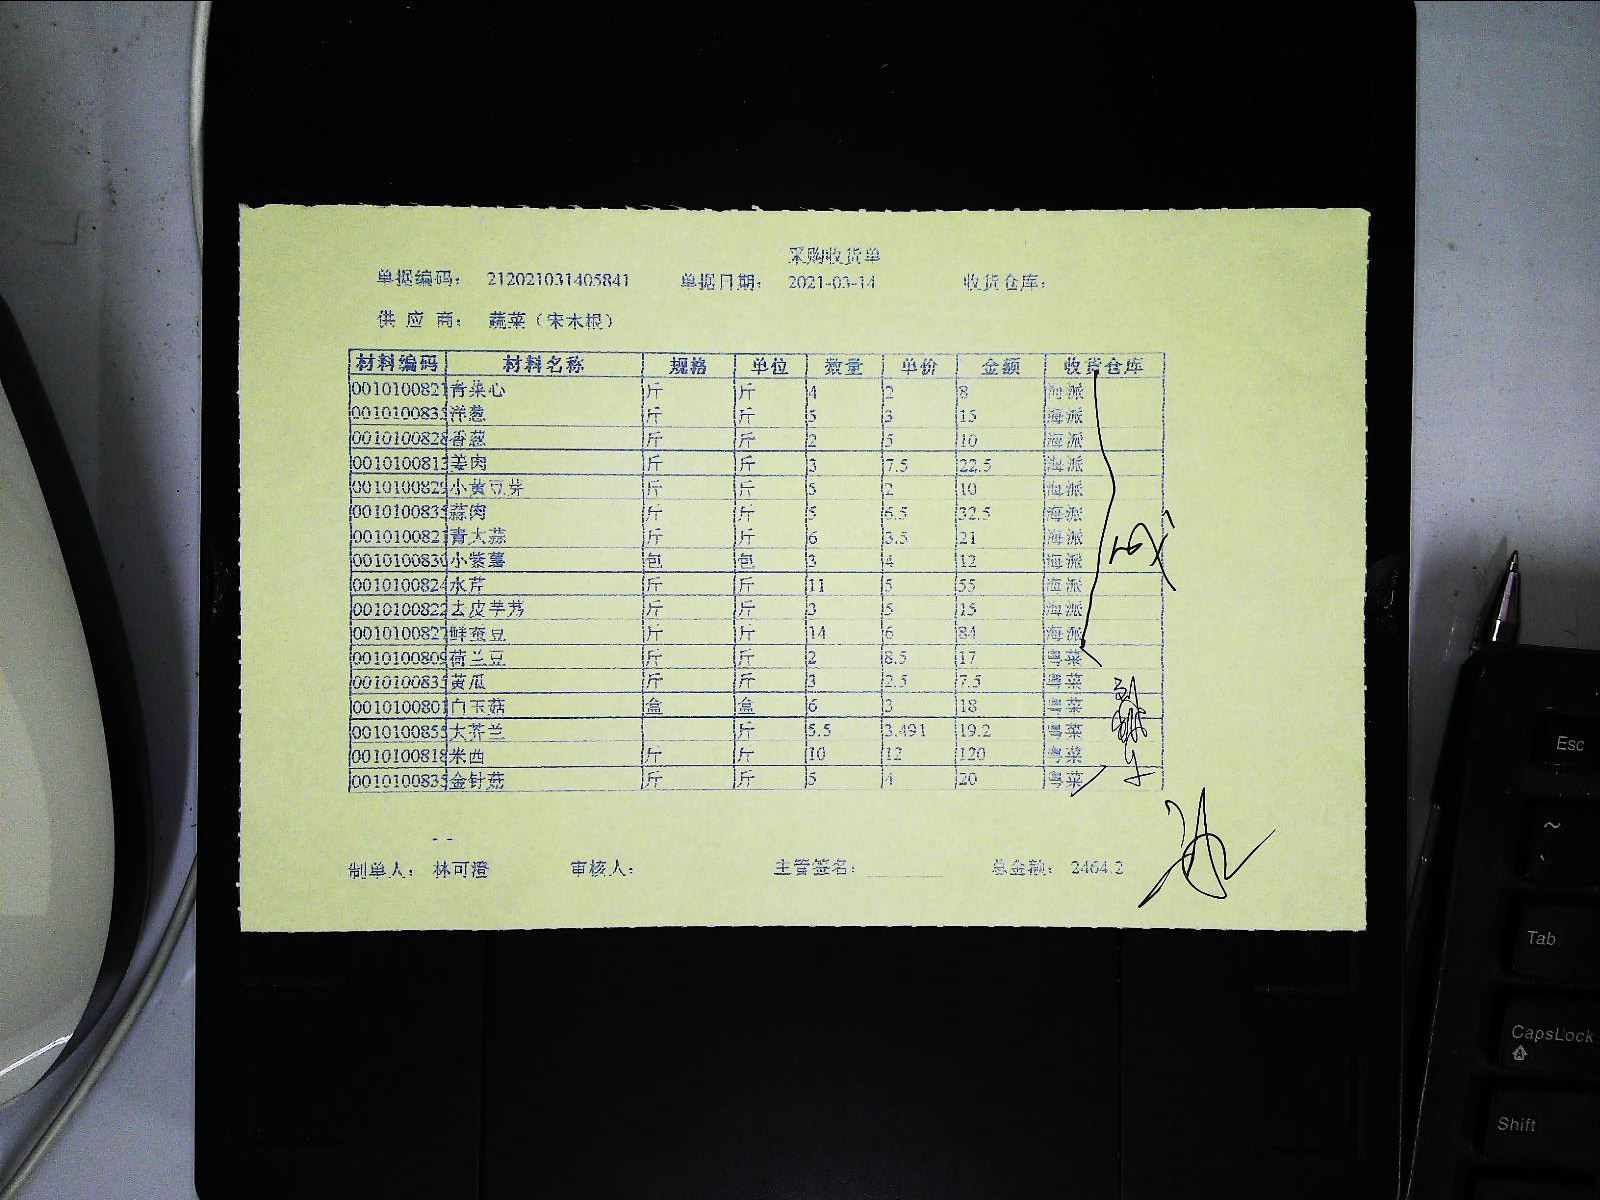 采购收货单
单据编码： 212021031405841 单据日期： 2021-03-14 收货仓库：
供 应 商： 蔬菜（宋木根）
材料编码 材料名称 规格 单位 数量 单价 金额 收货仓库
0010100821 青菜心 斤 斤 4 2 8 海派
001010083 洋葱 斤 斤 5 3 15 海派
0010100828 香葱 斤 斤 2 5 10 海派
001010081 姜肉 斤 斤 3 7.5 22.5 海派
001010082 小黄豆芽 斤 斤 5 2 10 海派
001010083 蒜肉 斤 斤 5 6.5 32.5 海派
001010082 青大蒜 斤 斤 6 3.5 21 海派
001010083 小紫薯 包 包 3 4 12 海派
001010082 水芹 斤 斤 11 5 55 海派
001010082 去皮芋艿 斤 斤 3 5 15 海派
001010082 鲜蚕豆 斤 斤 14 6 84 海派
001010080 荷兰豆 斤 斤 2 8.5 17 粤菜
001010083 黄瓜 斤 斤 3 2.5 7.5 粤菜
001010080 白玉菇 盒 盒 6 3 18 粤菜
001010085 大芥兰 斤 5.5 3.491 19.2 粤菜
0010100818 米西 斤 斤 10 12 120 粤菜
001010083 金针菇 斤 斤 5 4 20 粤菜
制单人： 林可澄 审核人： 主管签名： 总金额： 2464.2
Esc
~
Tab
CapsLock
Shift